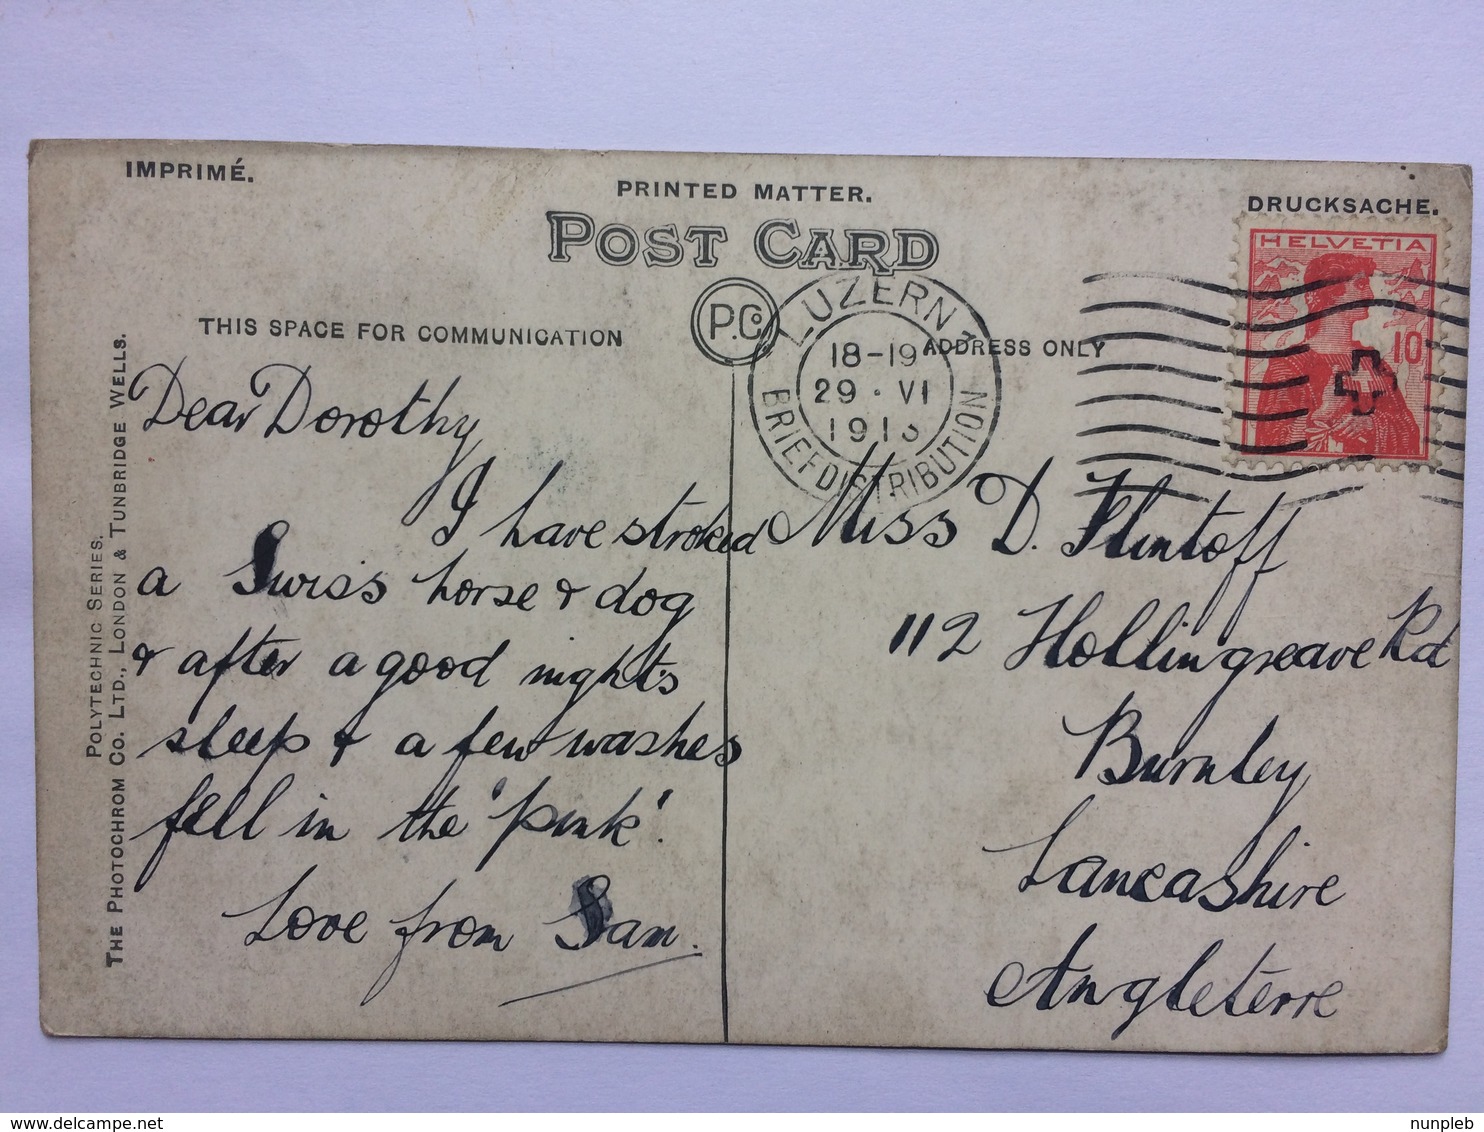 IMPRIMÉ.
PRINTED MATTER.
DRUCKSACHE.
POST CARD
P.Co
THIS SPACE FOR COMMUNICATION
ADDRESS ONLY
HELVETIA
10
LUZERN 1
18-19
29·VI
BRIEFDISTRIBUTION
Dear Dorothy
I have stroked
a Swiss horse & dog
& after a good night's
sleep & a few washes
feel in the "pink".
Love from Sam.
Miss D. Flintoff
112 Hollingreave Rd
Burnley
Lancashire
Angleterre
POLYTECHNIC SERIES.
THE PHOTOCHROM CO. LTD., LONDON & TUNBRIDGE WELLS.
delcampe.net
nunpleb